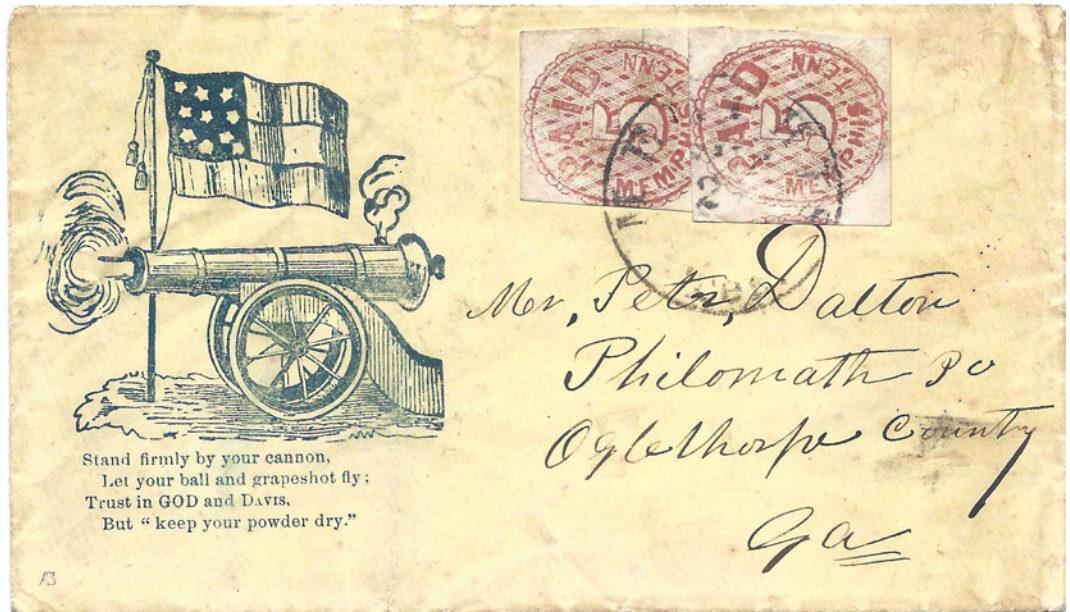 PAID 5 MEMPHIS TENN
PAID 5 MEMPHIS TENN
Mr, Peter, Dalton
Philomath Po
Oglethorpe County
Ga
Stand firmly by your cannon,
Let your ball and grapeshot fly;
Trust in GOD and DAVIS,
But “ keep your powder dry.”